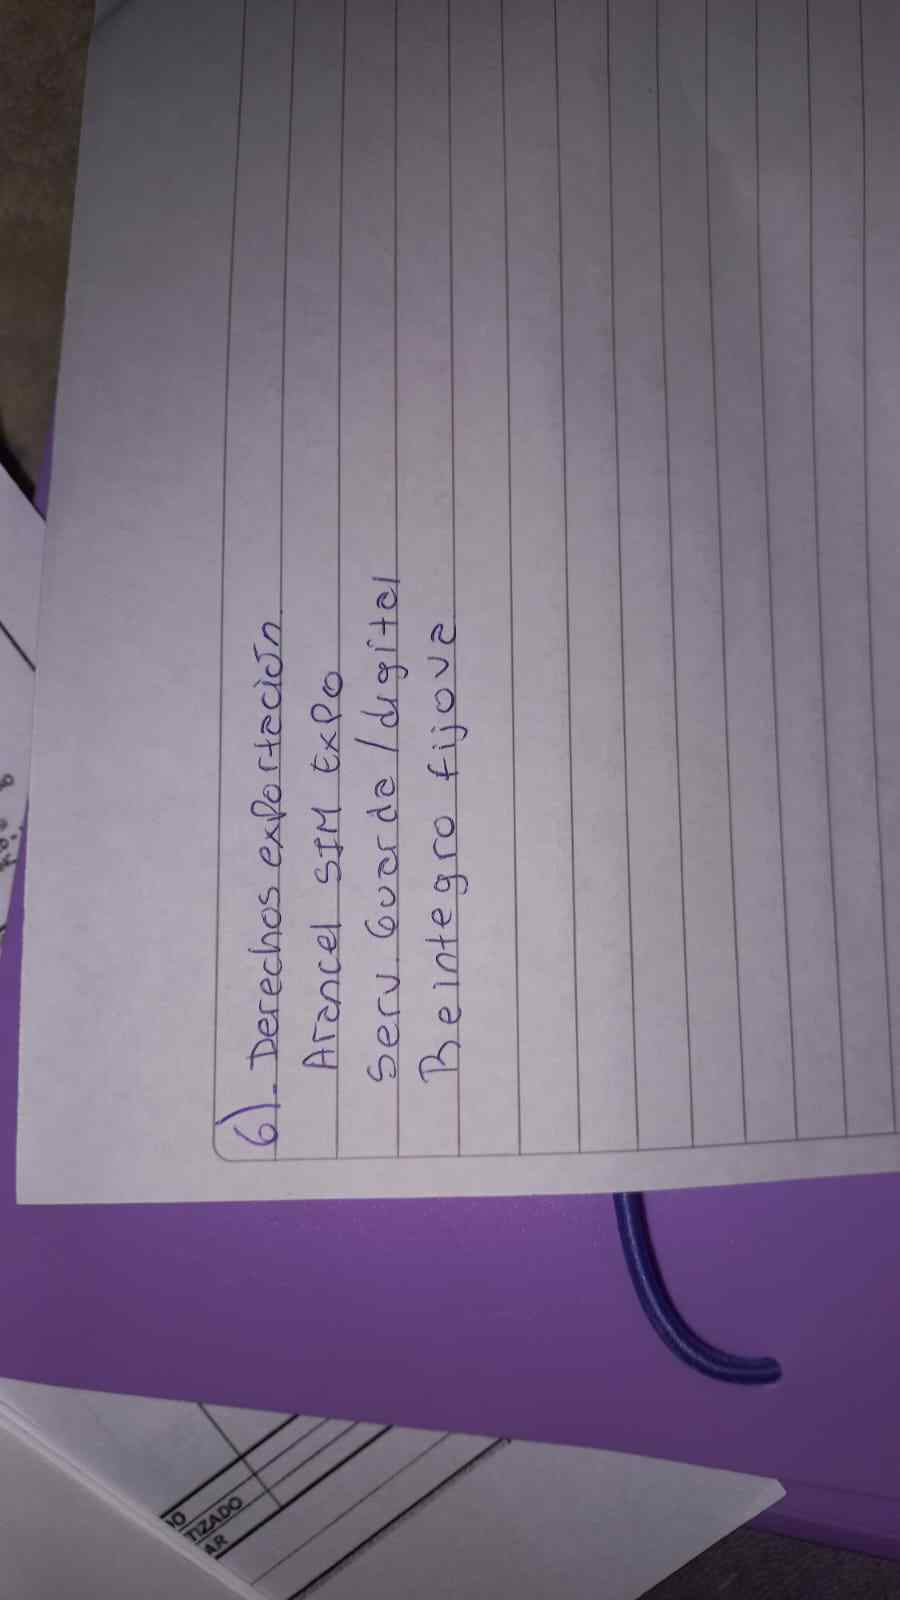 6). Derechos exportación
Arancel SIM Expo
Serv. Guarda/digital
Reintegro fijova
TIZADO
AR